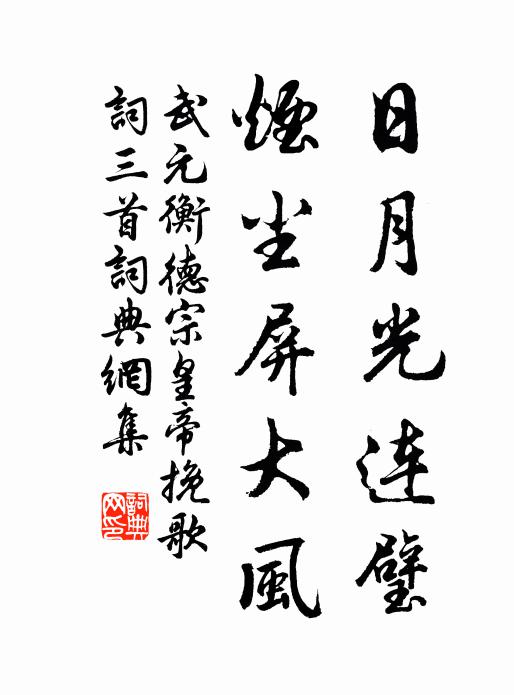 日月光连璧
煙尘屏大風
武元衡德宗皇帝挽歌
詞三首詞典網集
詞典
网印